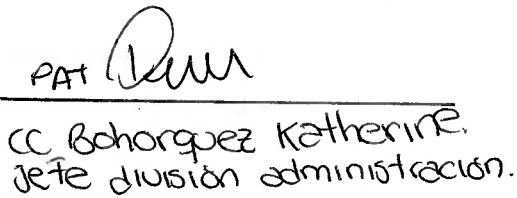 PAT
CC Bohorquez Katherine.
Jefe división administración.